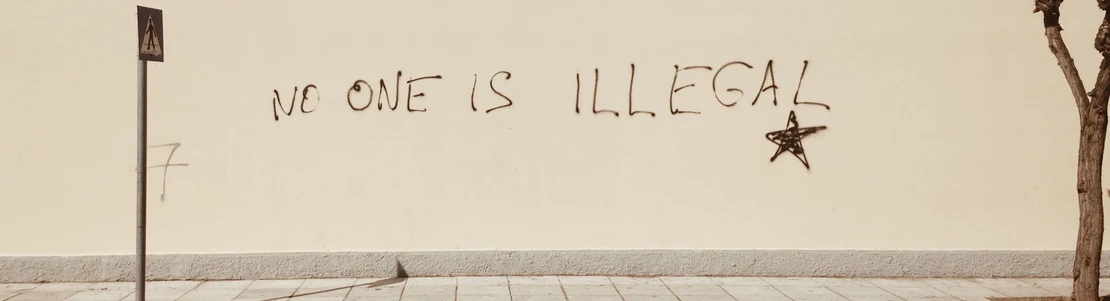 NO ONE IS ILLEGAL
7